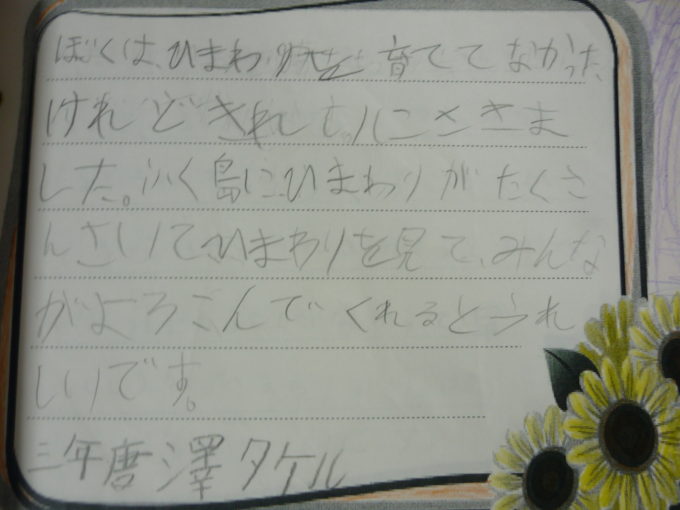 ぼくは、ひまわりを育ててなかった
けれどきれいにさきま
した。ふく島にひまわりがたくさ
んさいてひまわりを見て、みんな
がよろこんでくれるとうれ
しいです。
三年唐澤タケル